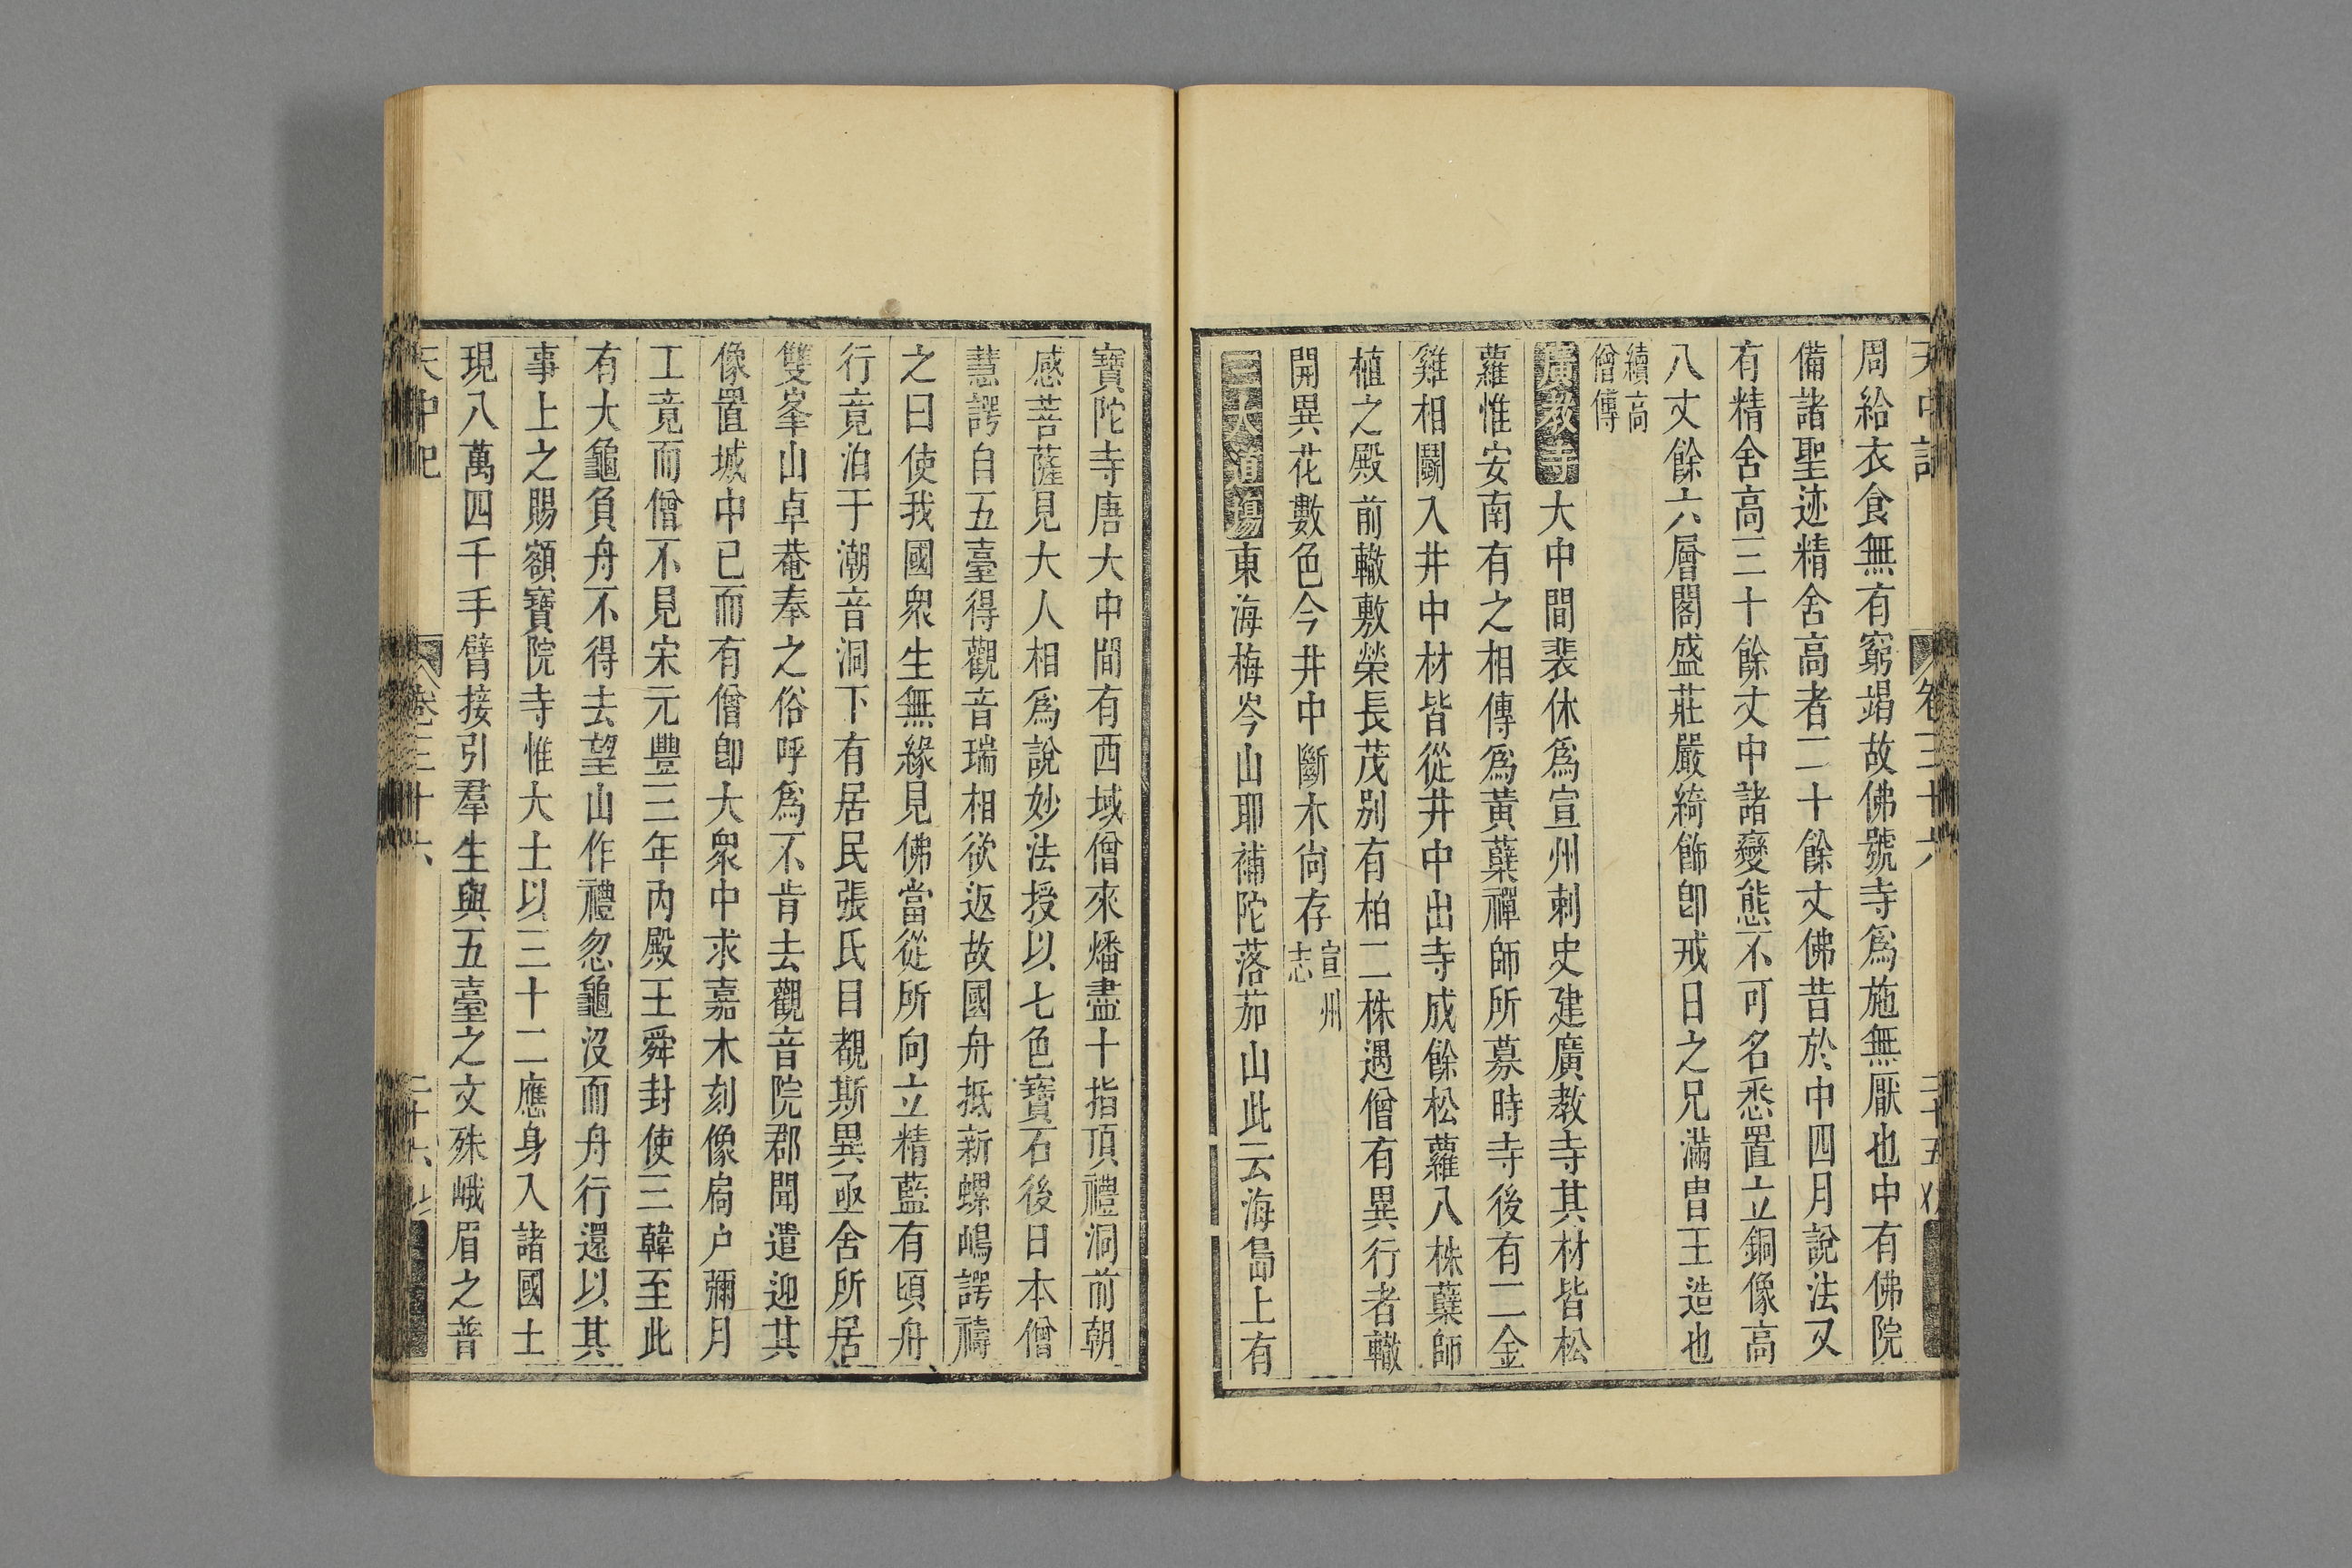 天中記
卷三十六
三十五
周給衣食無有窮竭故佛號寺爲施無厭也中有佛院
備諸聖迹精舍高者二十餘丈佛昔於中四月說法又
有精舍高三十餘丈中諸變態不可名悉置立銅像高
八丈餘六層閣盛莊嚴綺飾卽戒日之兄滿胄王造也
續高
僧傳
廣教寺大中間裴休爲宣州刺史建廣教寺其材皆松
蘿惟安南有之相傳爲黃蘗禪師所募時寺後有二金
雞相鬬入井中材皆從井中出寺成餘松蘿八株蘗師
植之殿前轍敷榮長茂别有柏二株遇僧有異行者轍
開異花數色今井中斷木尚存宣州
志
三大道場東海梅岑山耶補陀落茄山此云海島上有
寶陀寺唐大中間有西域僧來燔盡十指頂禮洞前朝
感菩薩見大人相爲說妙法授以七色寶石後日本僧
慧諤自五臺得觀音瑞相欲返故國舟抵新螺嶋諤禱
之曰使我國衆生無緣見佛當從所向立精藍有頃舟
行竟泊于潮音洞下有居民張氏目覩斯異亟舍所居
雙峯山卓菴奉之俗呼爲不肯去觀音院郡聞遣迎其
像置城中已而有僧卽大衆中求嘉木刻像扃户彌月
工竟而僧不見宋元豐三年內殿王舜封使三韓至此
有大龜負舟不得去望山作禮忽龜沒而舟行還以其
事上之賜額寶院寺惟大士以三十二應身入諸國土
現八萬四千手臂接引羣生與五臺之文殊峨眉之普
天中記
卷三十六
三十六